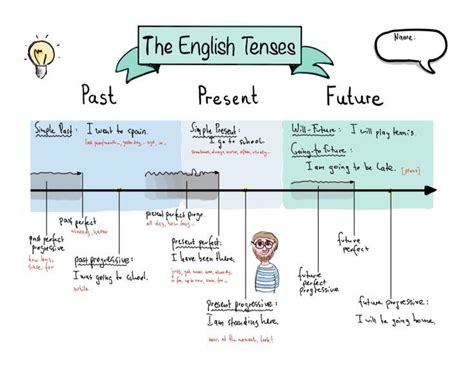 The English Tenses
Name:
Past Present Future
Simple Past: I went to spain.
Simple Present:
I go to school.
Will-Future: I will play tennis.
Going-to future:
I am going to be late. [plans]
past perfect
already, never
past perfect
progressive
how long,
since, for
past progressive:
I was going to school.
while
present perfect progr.
all day, how long,
present perfect:
I have been there.
present progressive:
I am standing here.
now, at the moment, look!
future
perfect
future
perfect
progressive
future progressive:
I will be going home.